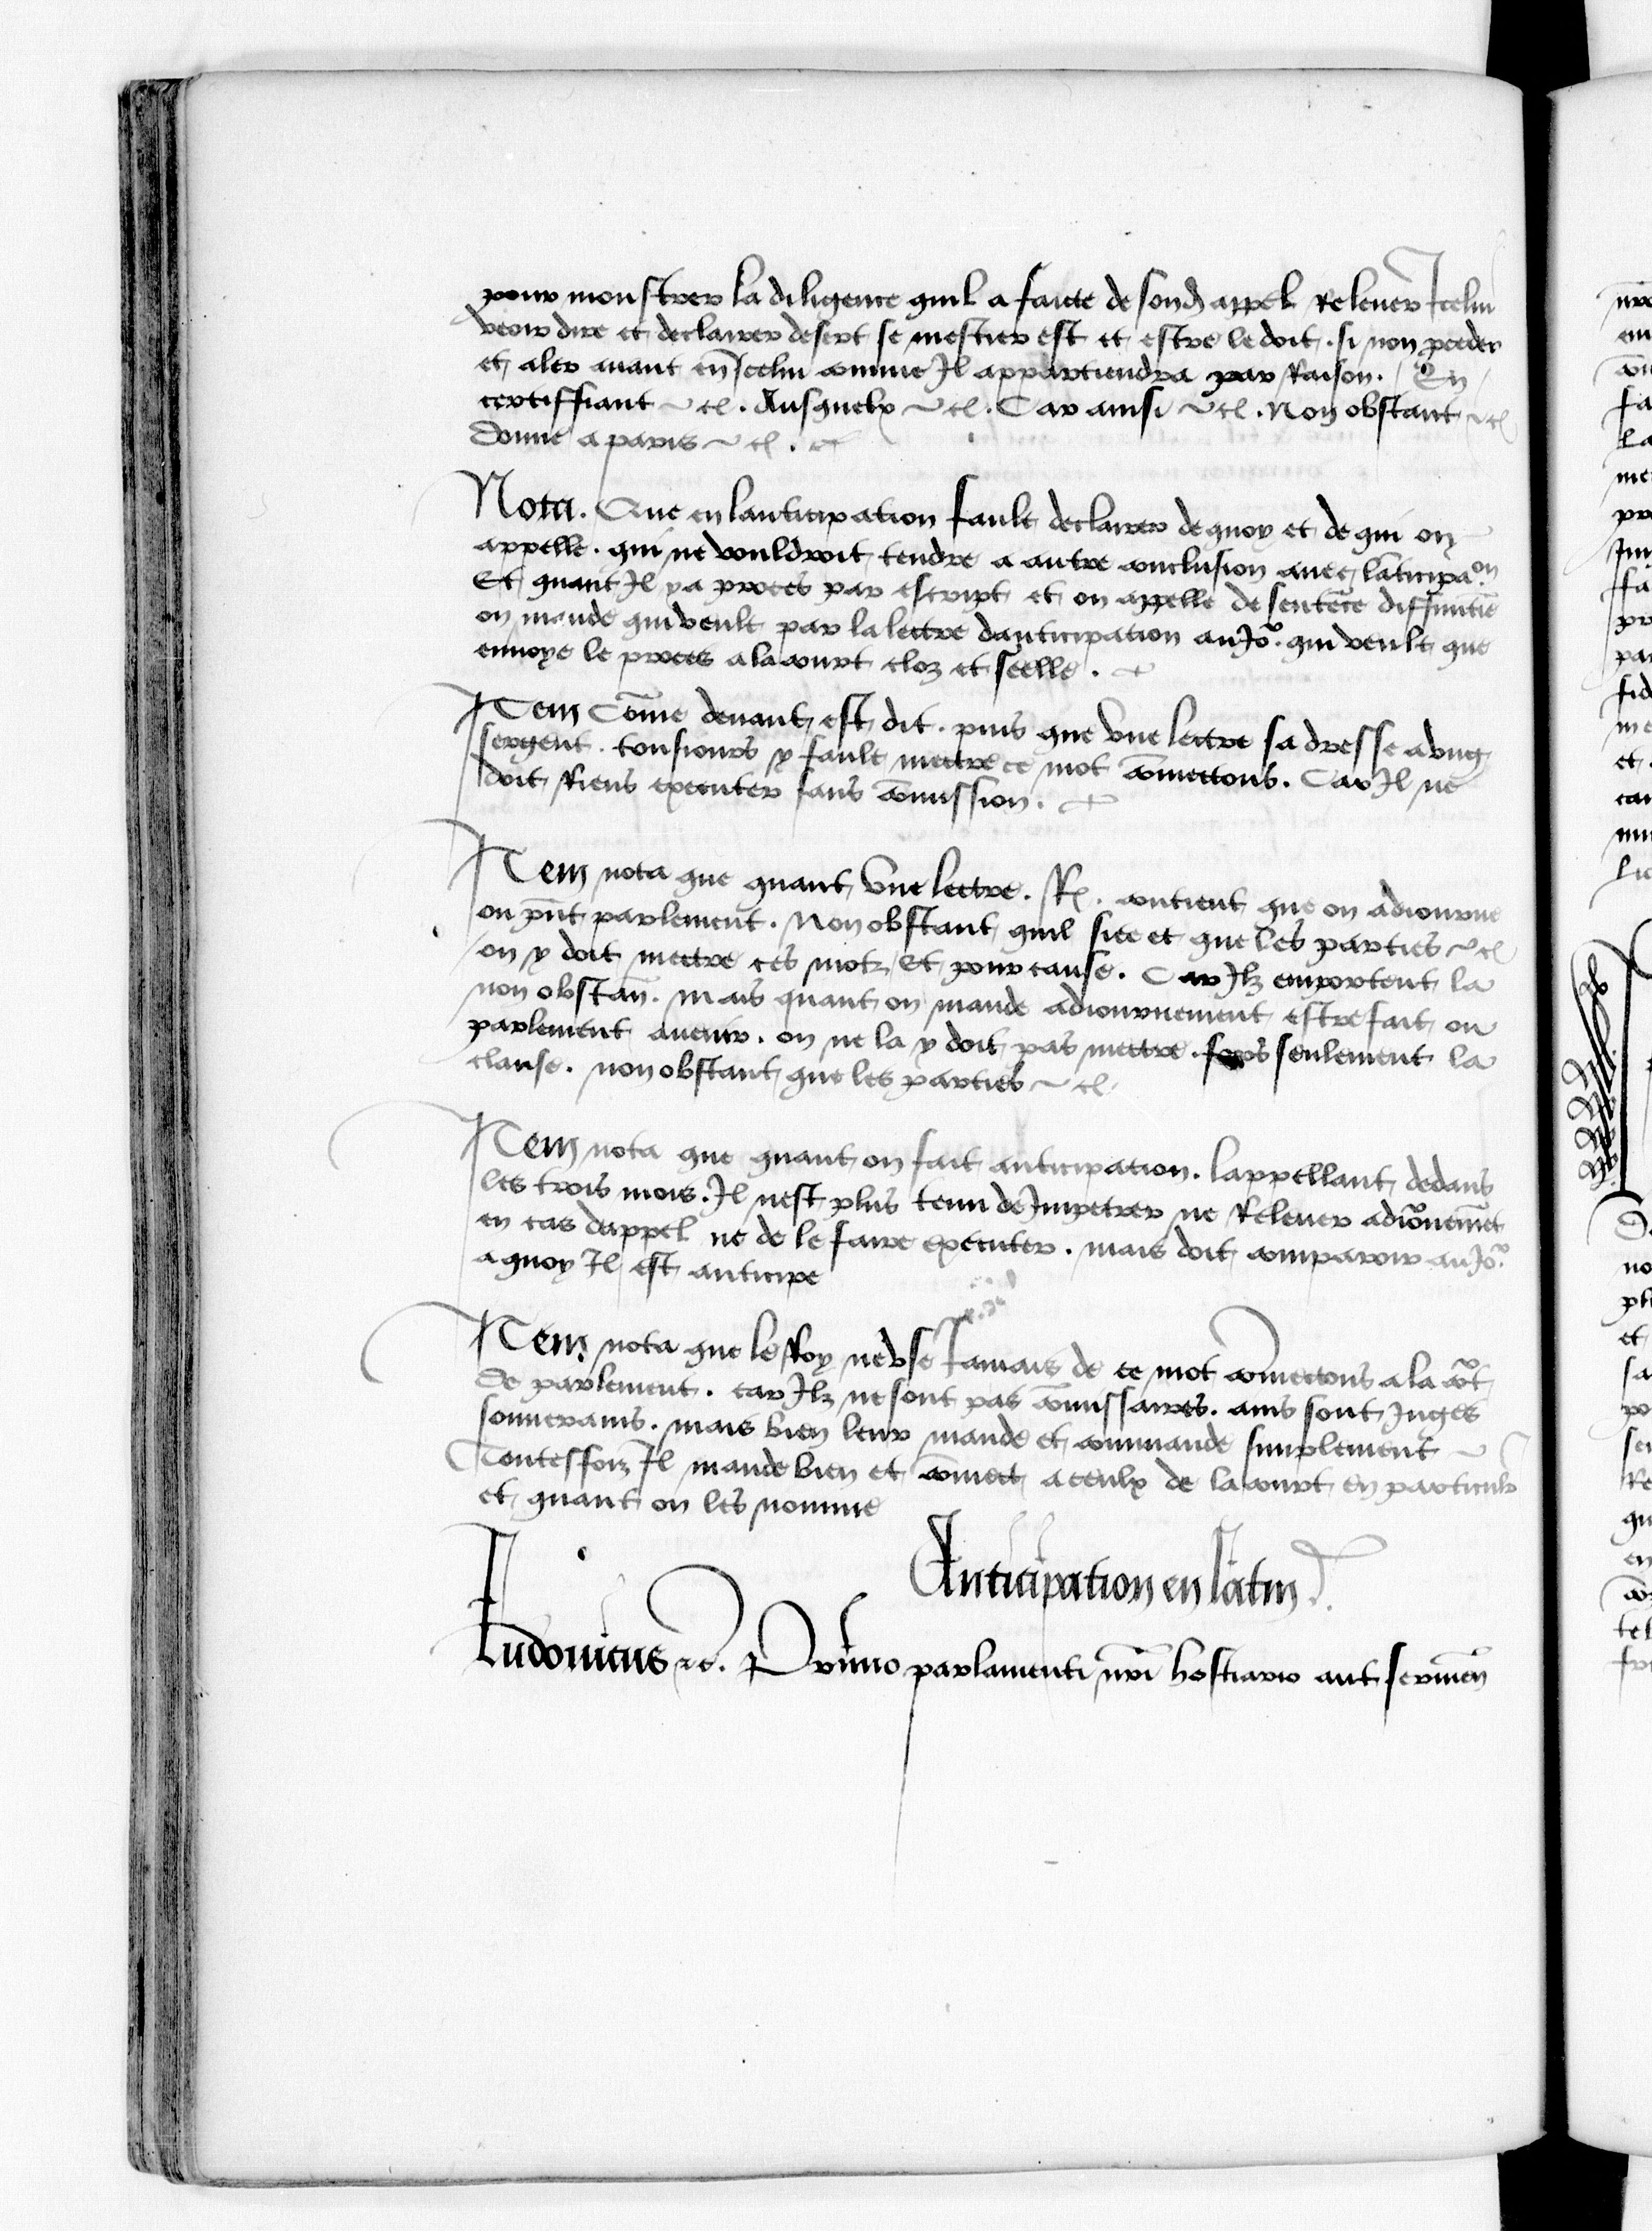 pour monstrer la diligence quil a faicte de sond appel Releuer Icelui
veoir dire et declairer desert se mestier est et estre le doit . si non proceder
et aler auant en Icelui comme Il appartiendra par Raison . En
certiffiant ~ cƺ . Ausquelx ~ cƺ . Car ainsi ~ cƺ . Non obstant ~ cƺ
donne a paris ~ cƺ .
Nota . Que en lanticipation fault declairer de quoy et de qui on
appelle . qui ne vouldroit tendre a autre conclusion auec lāticipaōn
Et quant Il y a proces par escript et on appelle de sentēce diffinitiē
on mande qui veult par la lectre danticipation au Jo͛ . qui veult que
enuoye le proces a la court cloz et seelle .
Item Cōme deuant est dit . puis que vne lectre sadresse a vng
sergent . tousiours y fault mectre ce mot cōmectons . Car Il ne
doit Riens executer sans cōmission .
Item nota que quant vne lectre . contient que on adiourne
ou pn̄t parlement . Non obstant quil siee et que les parties ~ cƺ
on y doit mectre ces motz Et pour cause . Car Ilz emportent la
non obstan̄ . Mais quant on mande adiournement estre fait ou
parlement auenir . on ne la y doit pas mectre . fors seulement la
clause . non obstant que les parties ~ cƺ
Item nota que quant on fait anticipation . lappellant dedans
les trois mois . Il nest plus tenu de Impetrer ne Releuer adio͛nemēt
en cas dappel ne de le faire executer . mais doit comparoir au Jo͛
a quoy Il est anticipe
Item nota que le Roy ne vse Jamais de ce mot cōmectons a la co͛t
de parlement . car Ilz ne sont pas cōmissaires . ains sont Juges
souuerains . mais bien leur mande et commande simplement ~
Toutesfoiz Il mande bien et cōmect a ceulx de la court en particulr̄
et quant on les nomme
Anticipation en latin
Ludouicus ⁊c̄ . Primo parlamenti nr̄i hostiario aut seruien̄